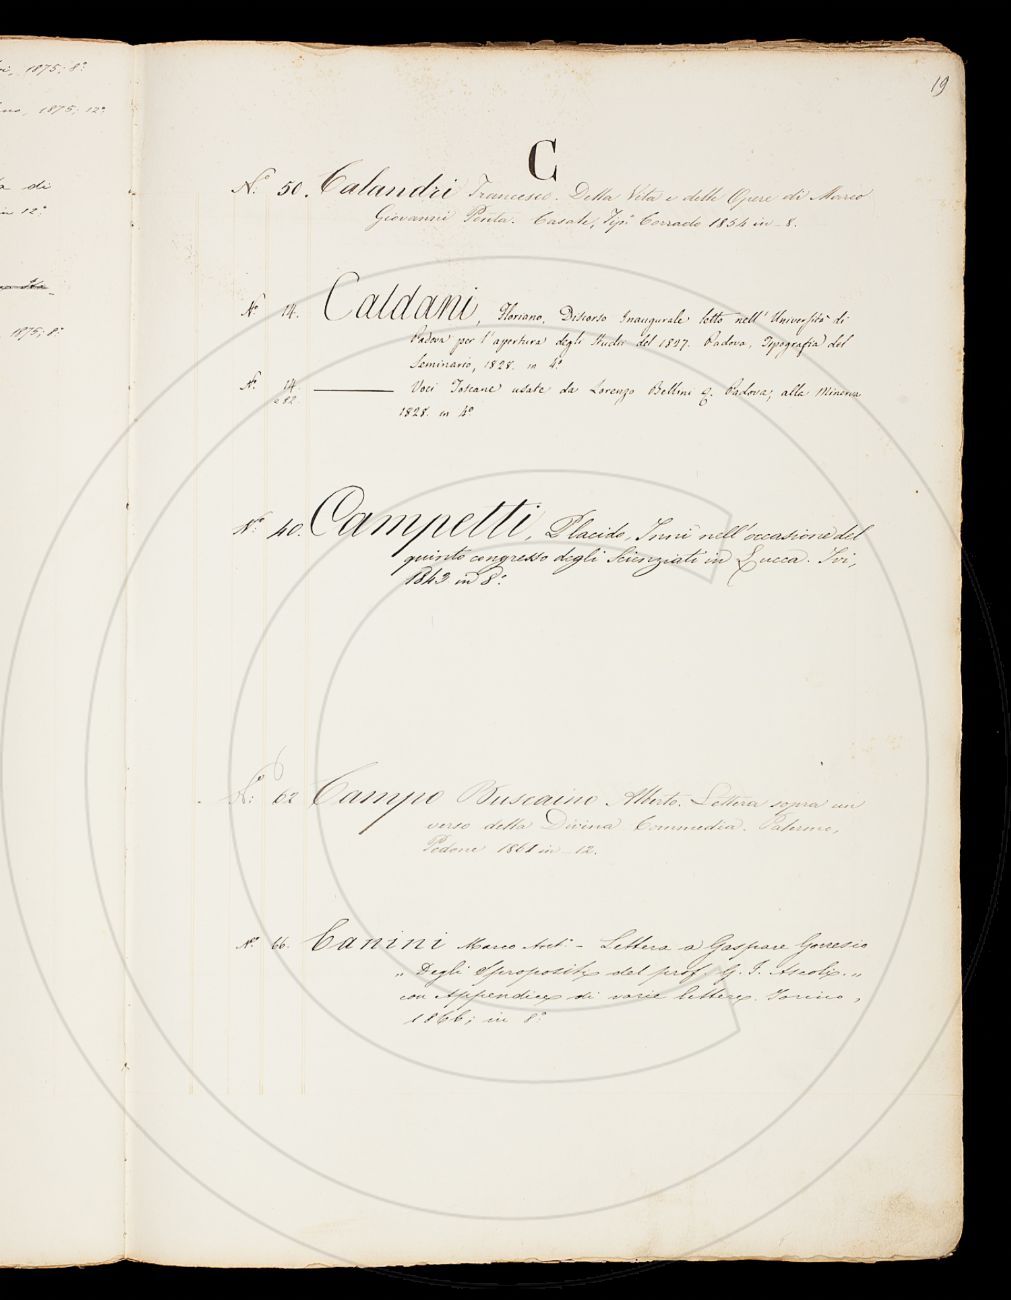 19
C
N.° 50. Calandri Francesco. Della Vita e delle Opere di Marco
Giovanni Ponta. Casale, Tip. Corrado 1854 in-8.
N° 14. Caldani, Floriano, Discorso Inaugurale letto nell' Università di
Padova per l'apertura degli Studii del 1827. Padova, Tipografia del
Seminario, 1828. in 4°
N° 14. ——— Voci Toscane usate da Lorenzo Bellini &. Padova, alla Minerva
682.
1828. in 4°
N° 40. Campetti, Placido, Inni nell'occasione del
quinto congresso degli Scienziati in Lucca. Ivi,
1843 in 8°.
N°: 62 Campo Buscaino Alberto. Lettera sopra un
verso della Divina Commedia. Palermo,
Pedone 1861 in-12.
N° 66. Canini Marco Ant.° - Lettera a Gaspare Gorresio
„ Degli Spropositi del prof. G. I. Ascoli. „
con Appendice di varie lettere. Torino,
1866; in 8°
1875; 8°
1875; 12°
di
in 12°
1875; 8°